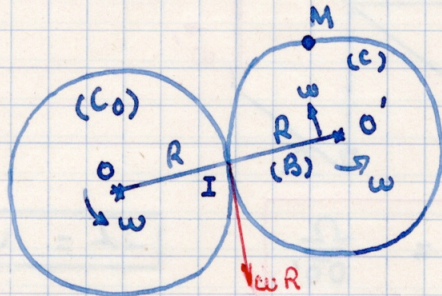 M
(C)
(C₀)
ω
R
O'
O
R
(B)
I
ω
ω
ωR